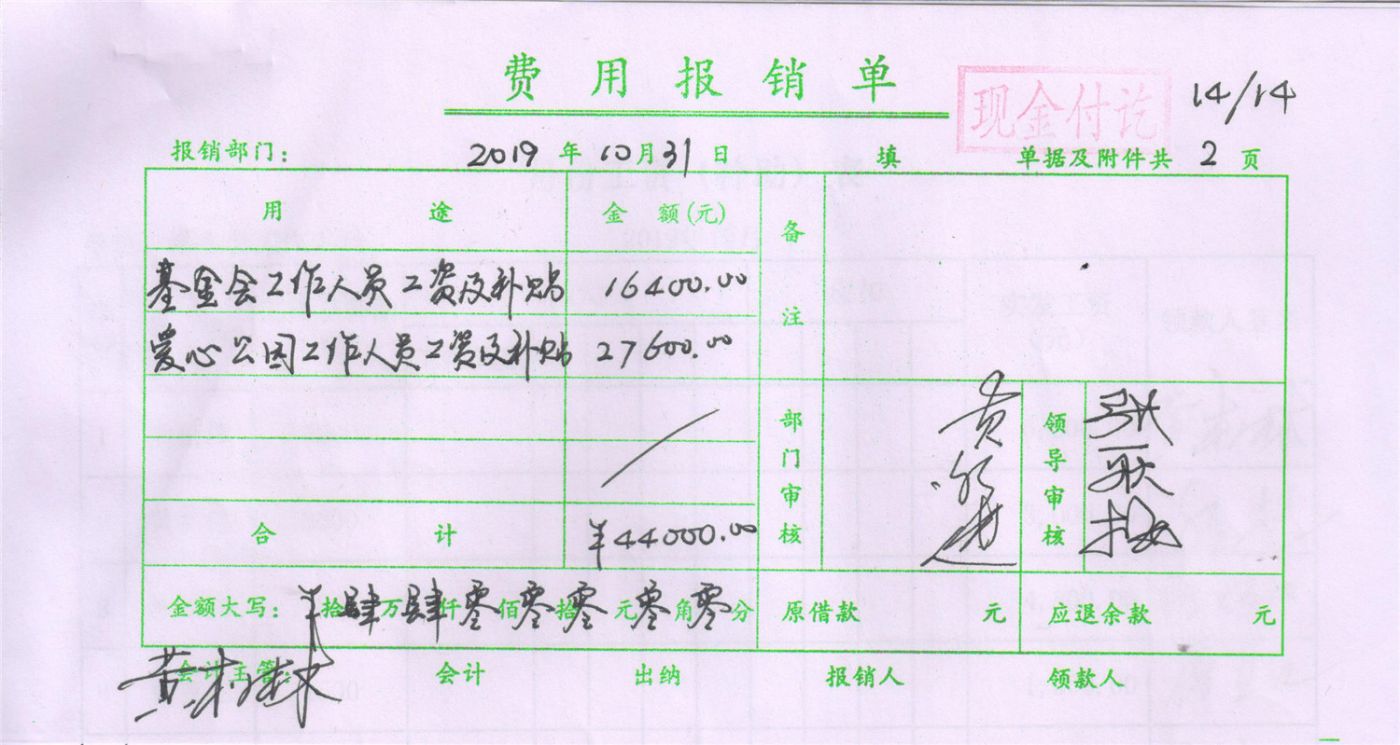 费用报销单
现金付讫
14/14
报销部门： 2019 年 10 月 31 日 填 单据及附件共 2 页
用途 金额(元) 备注
基金会工作人员工资及补贴 16400.00
爱心公园工作人员工资及补贴 27600.00
部门审核 领导审核
合计 ¥44000.00
金额大写： ¥拾肆万肆仟零佰零拾零元零角零分 原借款 元 应退余款 元
会计主管： 会计 出纳 报销人 领款人